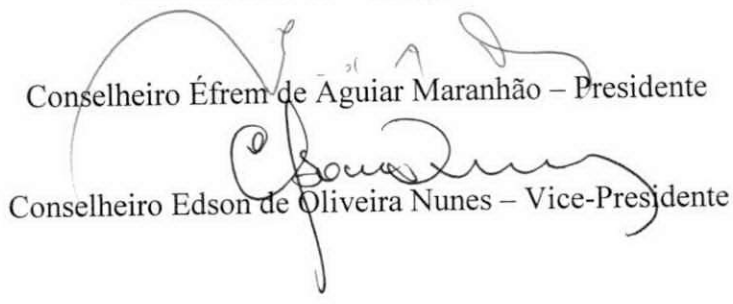 Conselheiro Éfrem de Aguiar Maranhão – Presidente
Conselheiro Edson de Oliveira Nunes – Vice-Presidente